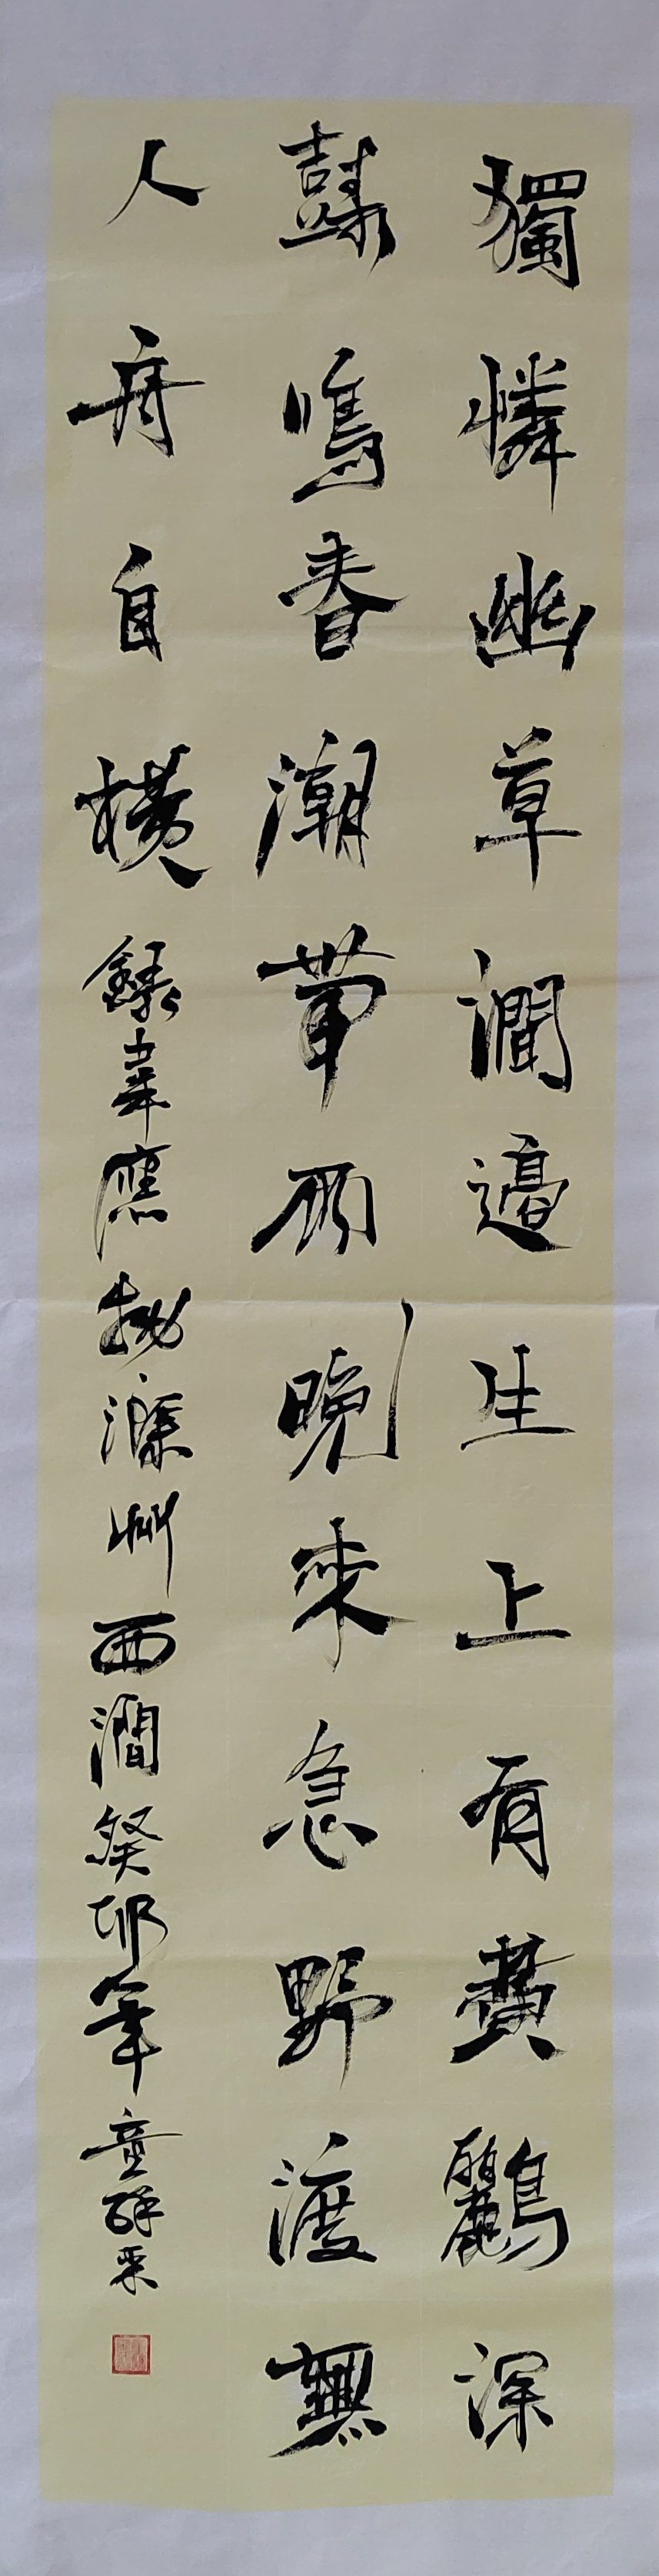 獨憐幽草澗邊生上有黃鸝深
樹鳴春潮帶雨晚來急野渡無
人舟自橫錄韋應物滁州西澗癸卯年童